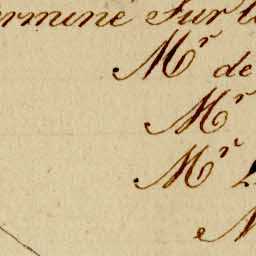 erminé Sur l
Mr de
Mr
Mr